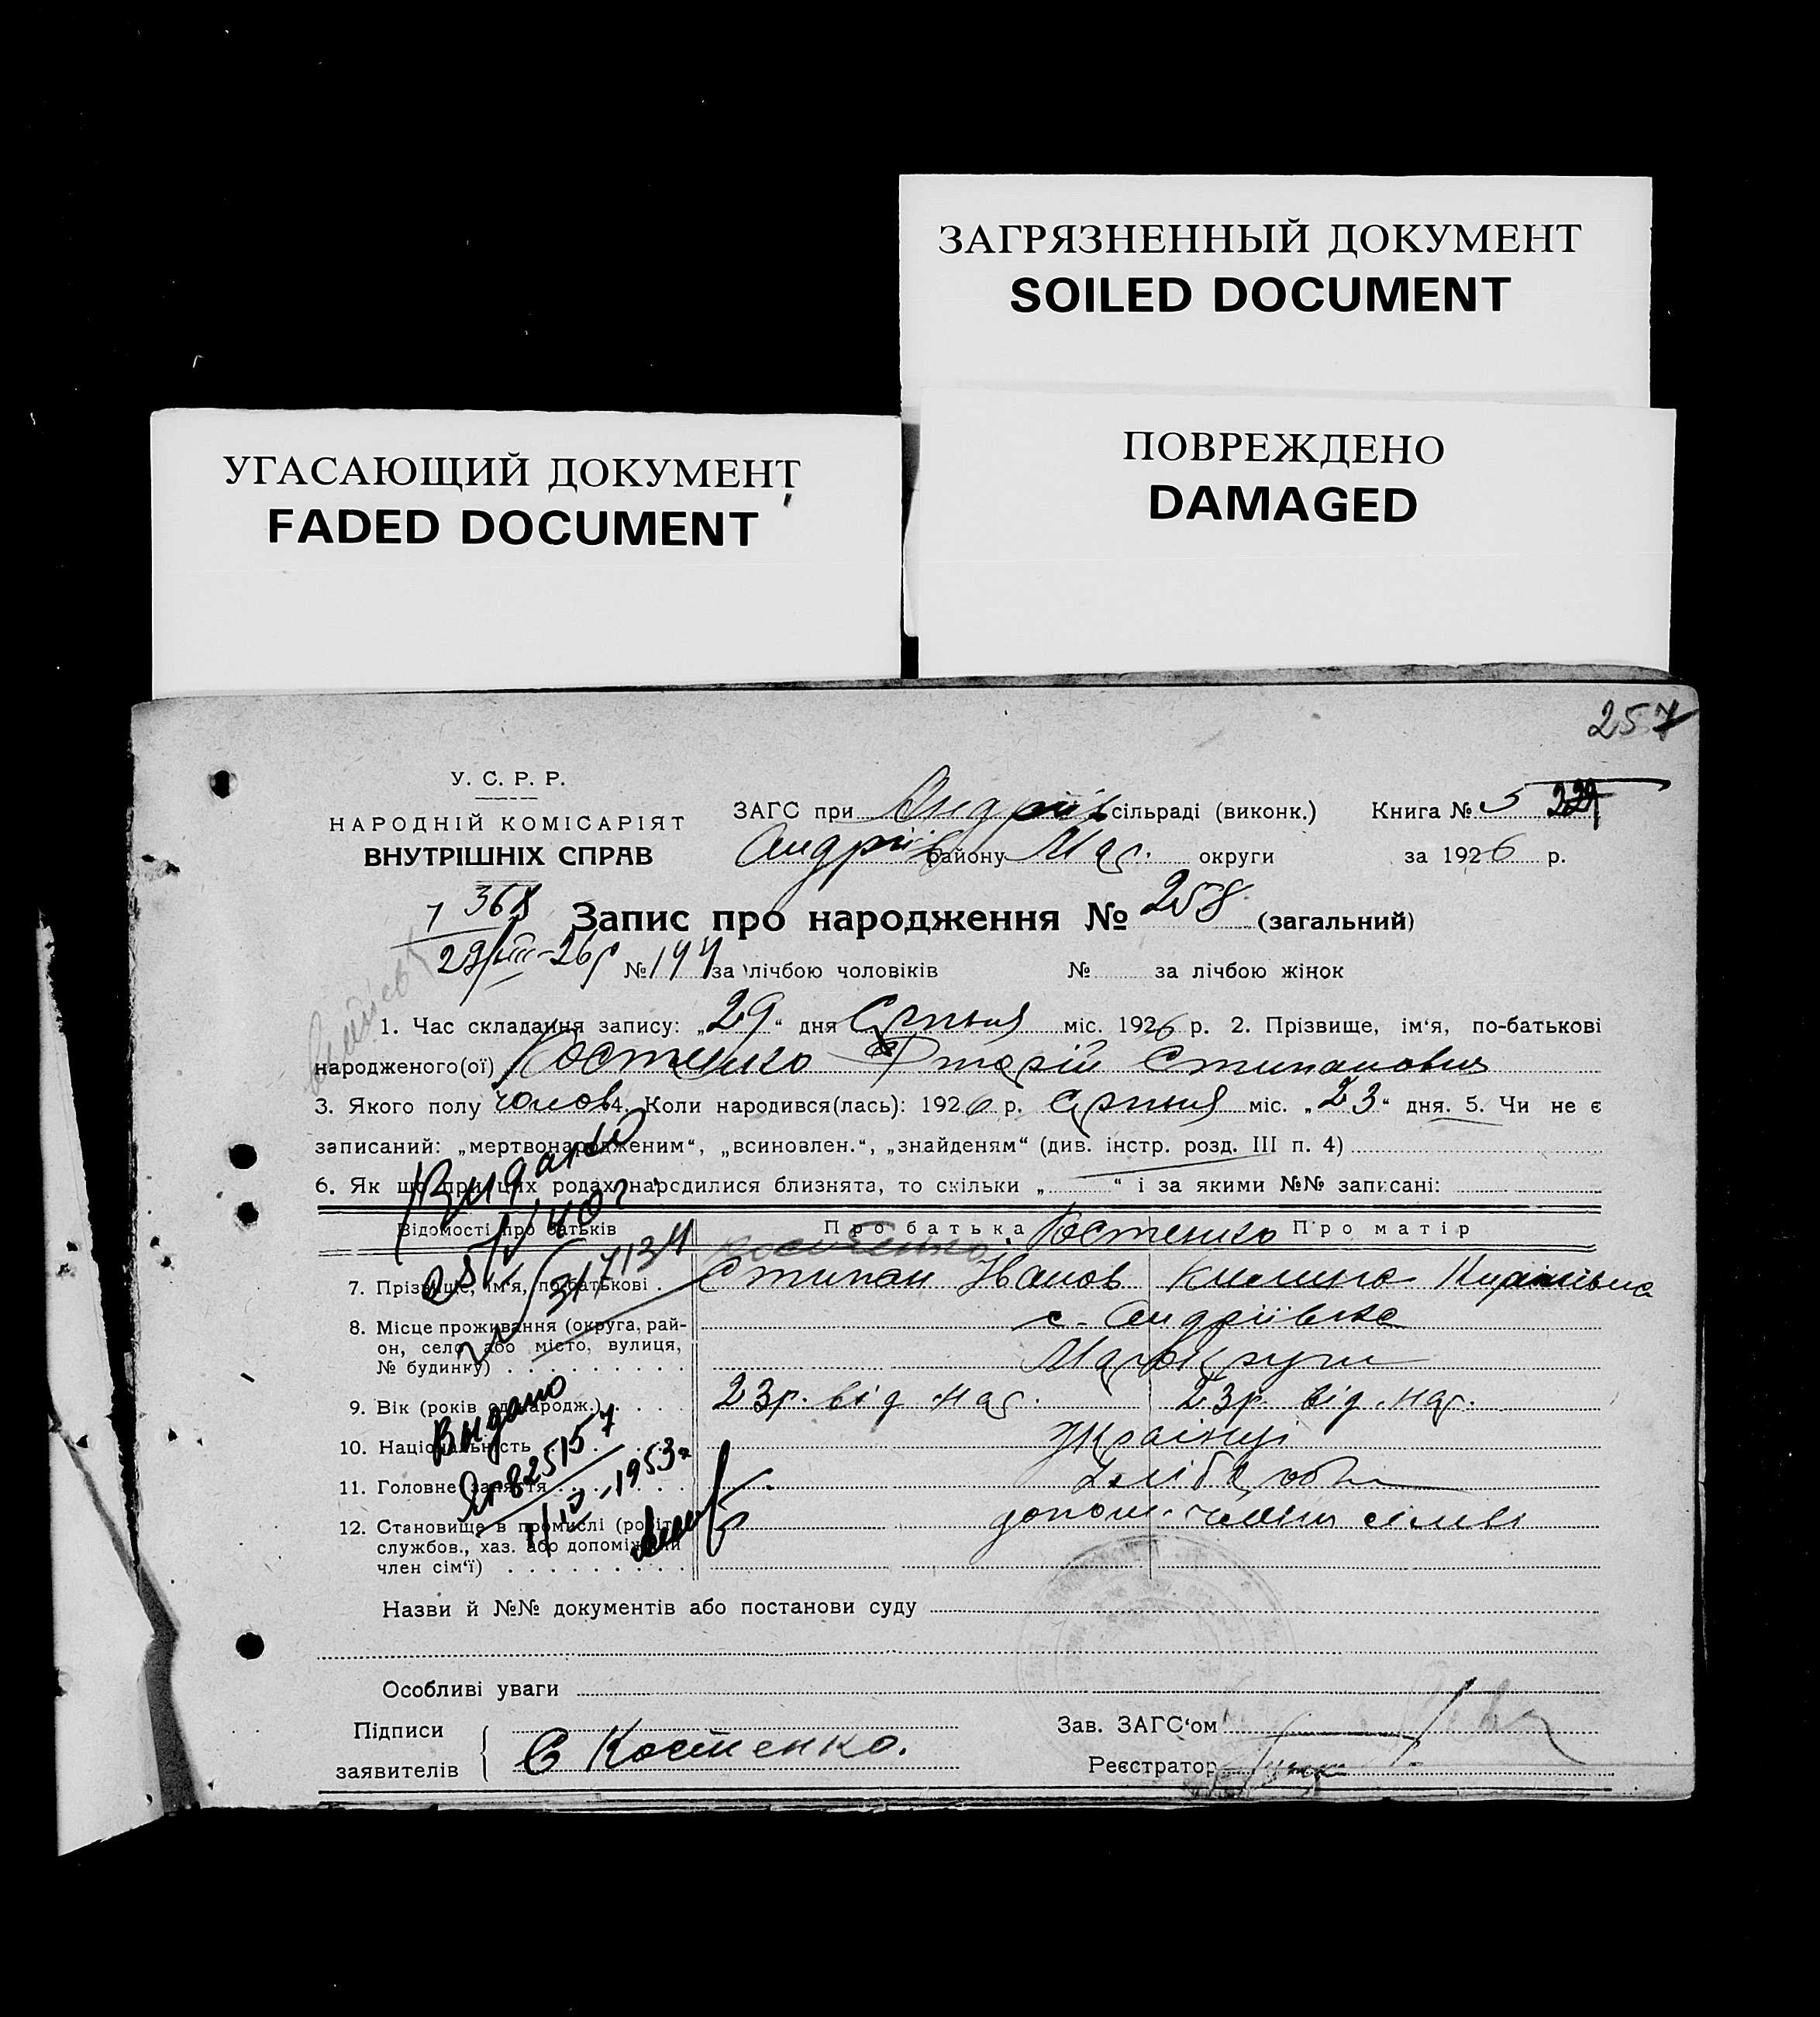 ЗАГРЯЗНЕННЫЙ ДОКУМЕНТ
SOILED DOCUMENT
УГАСАЮЩИЙ ДОКУМЕНТ
FADED DOCUMENT
ПОВРЕЖДЕНО
DAMAGED
257
У. С. Р. Р.
НАРОДНІЙ КОМІСАРІЯТ
ВНУТРІШНІХ СПРАВ
ЗАГС при Андріїв сільраді (виконк.) Книга № 5
Андріїв району Мар. округи за 1926 р.
Запис про народження № 258 (загальний)
№ 144 за лічбою чоловіків № за лічбою жінок
1. Час складання запису: „29“ дня Серпня міс. 1926 р. 2. Прізвище, ім‘я, по-батькові
народженого(ої) Костенко Стипанович
3. Якого полу чолов 4. Коли народився(лась): 1926 р. Серпня міс. „23“ дня. 5. Чи не є
записаний: „мертвонародженим“, „всиновлен.“, „знайденям“ (див. інстр. розд. III п. 4)
6. Як що при цих родах народилися близнята, то скільки „ “ і за якими №№ записані:
Видано
Відомості про батьків Про батька Костенко Про матір
7. Прізвище, ім‘я, по-батькові . Стипан Іванов
8. Місце проживання (округа, рай-
он, село або місто, вулиця,
№ будинку) . . . . . . . . .
с. Андріївка
Марокруги
9. Вік (років од народж.) . . . . 23р. від нар. 23р. від. нар.
10. Національність . . . . . Українці
11. Головне заняття . . . . . Хлібороб
12. Становище в промислі (робіт.
службов., хаз. або допоміжний
член сім‘ї) . . . . . . . . .
допом. члени
Видано
Яг825157
1953г
Назви й №№ документів або постанови суду
Особливі уваги
Підписи
заявителів
С Костенко.
Зав. ЗАГС‘ом
Реєстратор